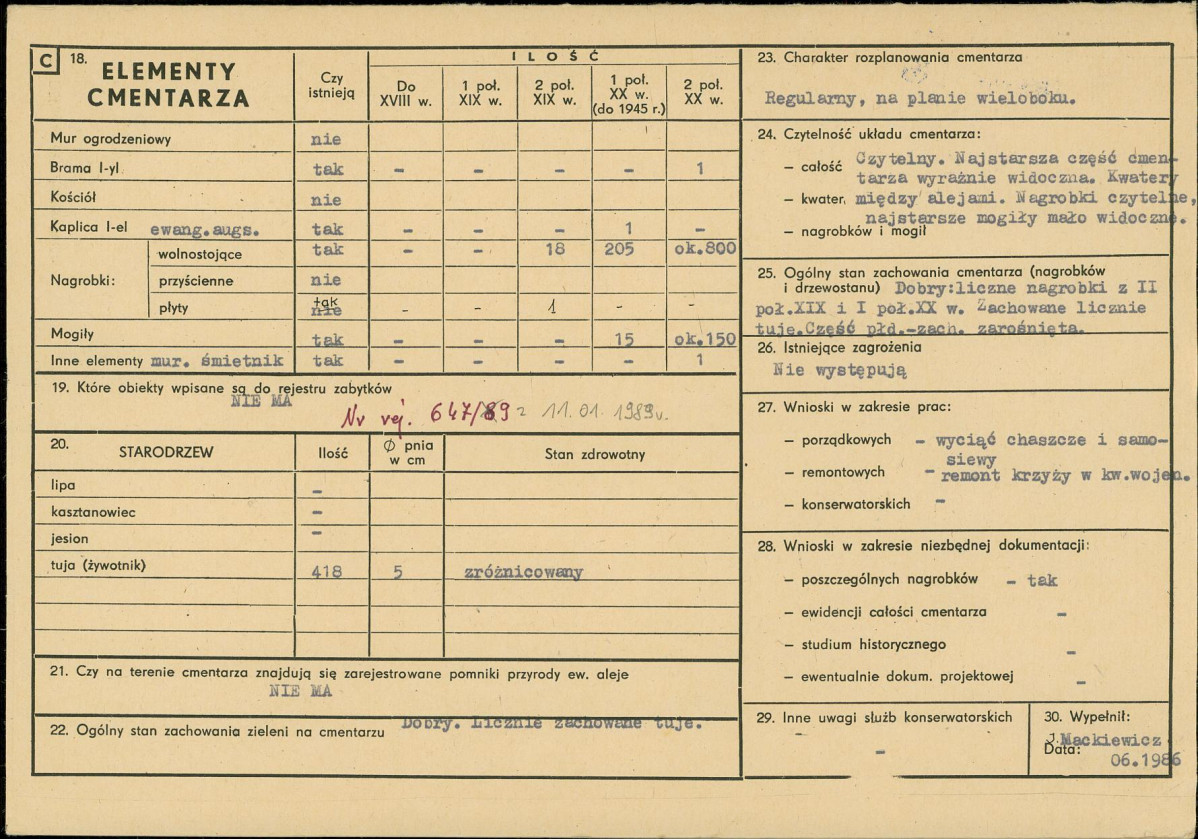 C 18. ELEMENTY CMENTARZA
Czy istnieją
ILOŚĆ
Do XVIII w.
1 poł. XIX w.
2 poł. XIX w.
1 poł. XX w. (do 1945 r.)
2 poł. XX w.
Mur ogrodzeniowy nie
Brama I-yl tak – – – – 1
Kościół nie
Kaplica I-el ewang.augs. tak – – – 1 –
Nagrobki:
wolnostojące tak – – 18 205 ok.800
przyścienne nie
płyty tak nie – – 1 – –
Mogiły tak – – – 15 ok.150
Inne elementy mur. śmietnik tak – – – – 1
19. Które obiekty wpisane są do rejestru zabytków
NIE MA
Nr rej. 647/89 z 11.01.1989r.
20. STARODRZEW Ilość Ø pnia w cm Stan zdrowotny
lipa –
kasztanowiec –
jesion –
tuja (żywotnik) 418 5 zróżnicowany
21. Czy na terenie cmentarza znajdują się zarejestrowane pomniki przyrody ew. aleje
NIE MA
22. Ogólny stan zachowania zieleni na cmentarzu Dobry. Licznie zachowane tuje.
23. Charakter rozplanowania cmentarza
Regularny, na planie wieloboku.
24. Czytelność układu cmentarza:
– całość Czytelny. Najstarsza część cmen-
tarza wyraźnie widoczna. Kwatery
– kwater, między alejami. Nagrobki czytelne,
najstarsze mogiły mało widoczne.
– nagrobków i mogił
25. Ogólny stan zachowania cmentarza (nagrobków
i drzewostanu) Dobry:liczne nagrobki z II
poł.XIX i I poł.XX w. Zachowane licznie
tuje.Część płd.-zach. zarośnięta.
26. Istniejące zagrożenia
Nie występują
27. Wnioski w zakresie prac:
– porządkowych – wyciąć chaszcze i samo-
siewy
– remontowych – remont krzyży w kw.wojen.
– konserwatorskich –
28. Wnioski w zakresie niezbędnej dokumentacji:
– poszczególnych nagrobków – tak
– ewidencji całości cmentarza –
– studium historycznego –
– ewentualnie dokum. projektowej –
29. Inne uwagi służb konserwatorskich
–
–
30. Wypełnił:
J.Mackiewicz
Data:
06.1986